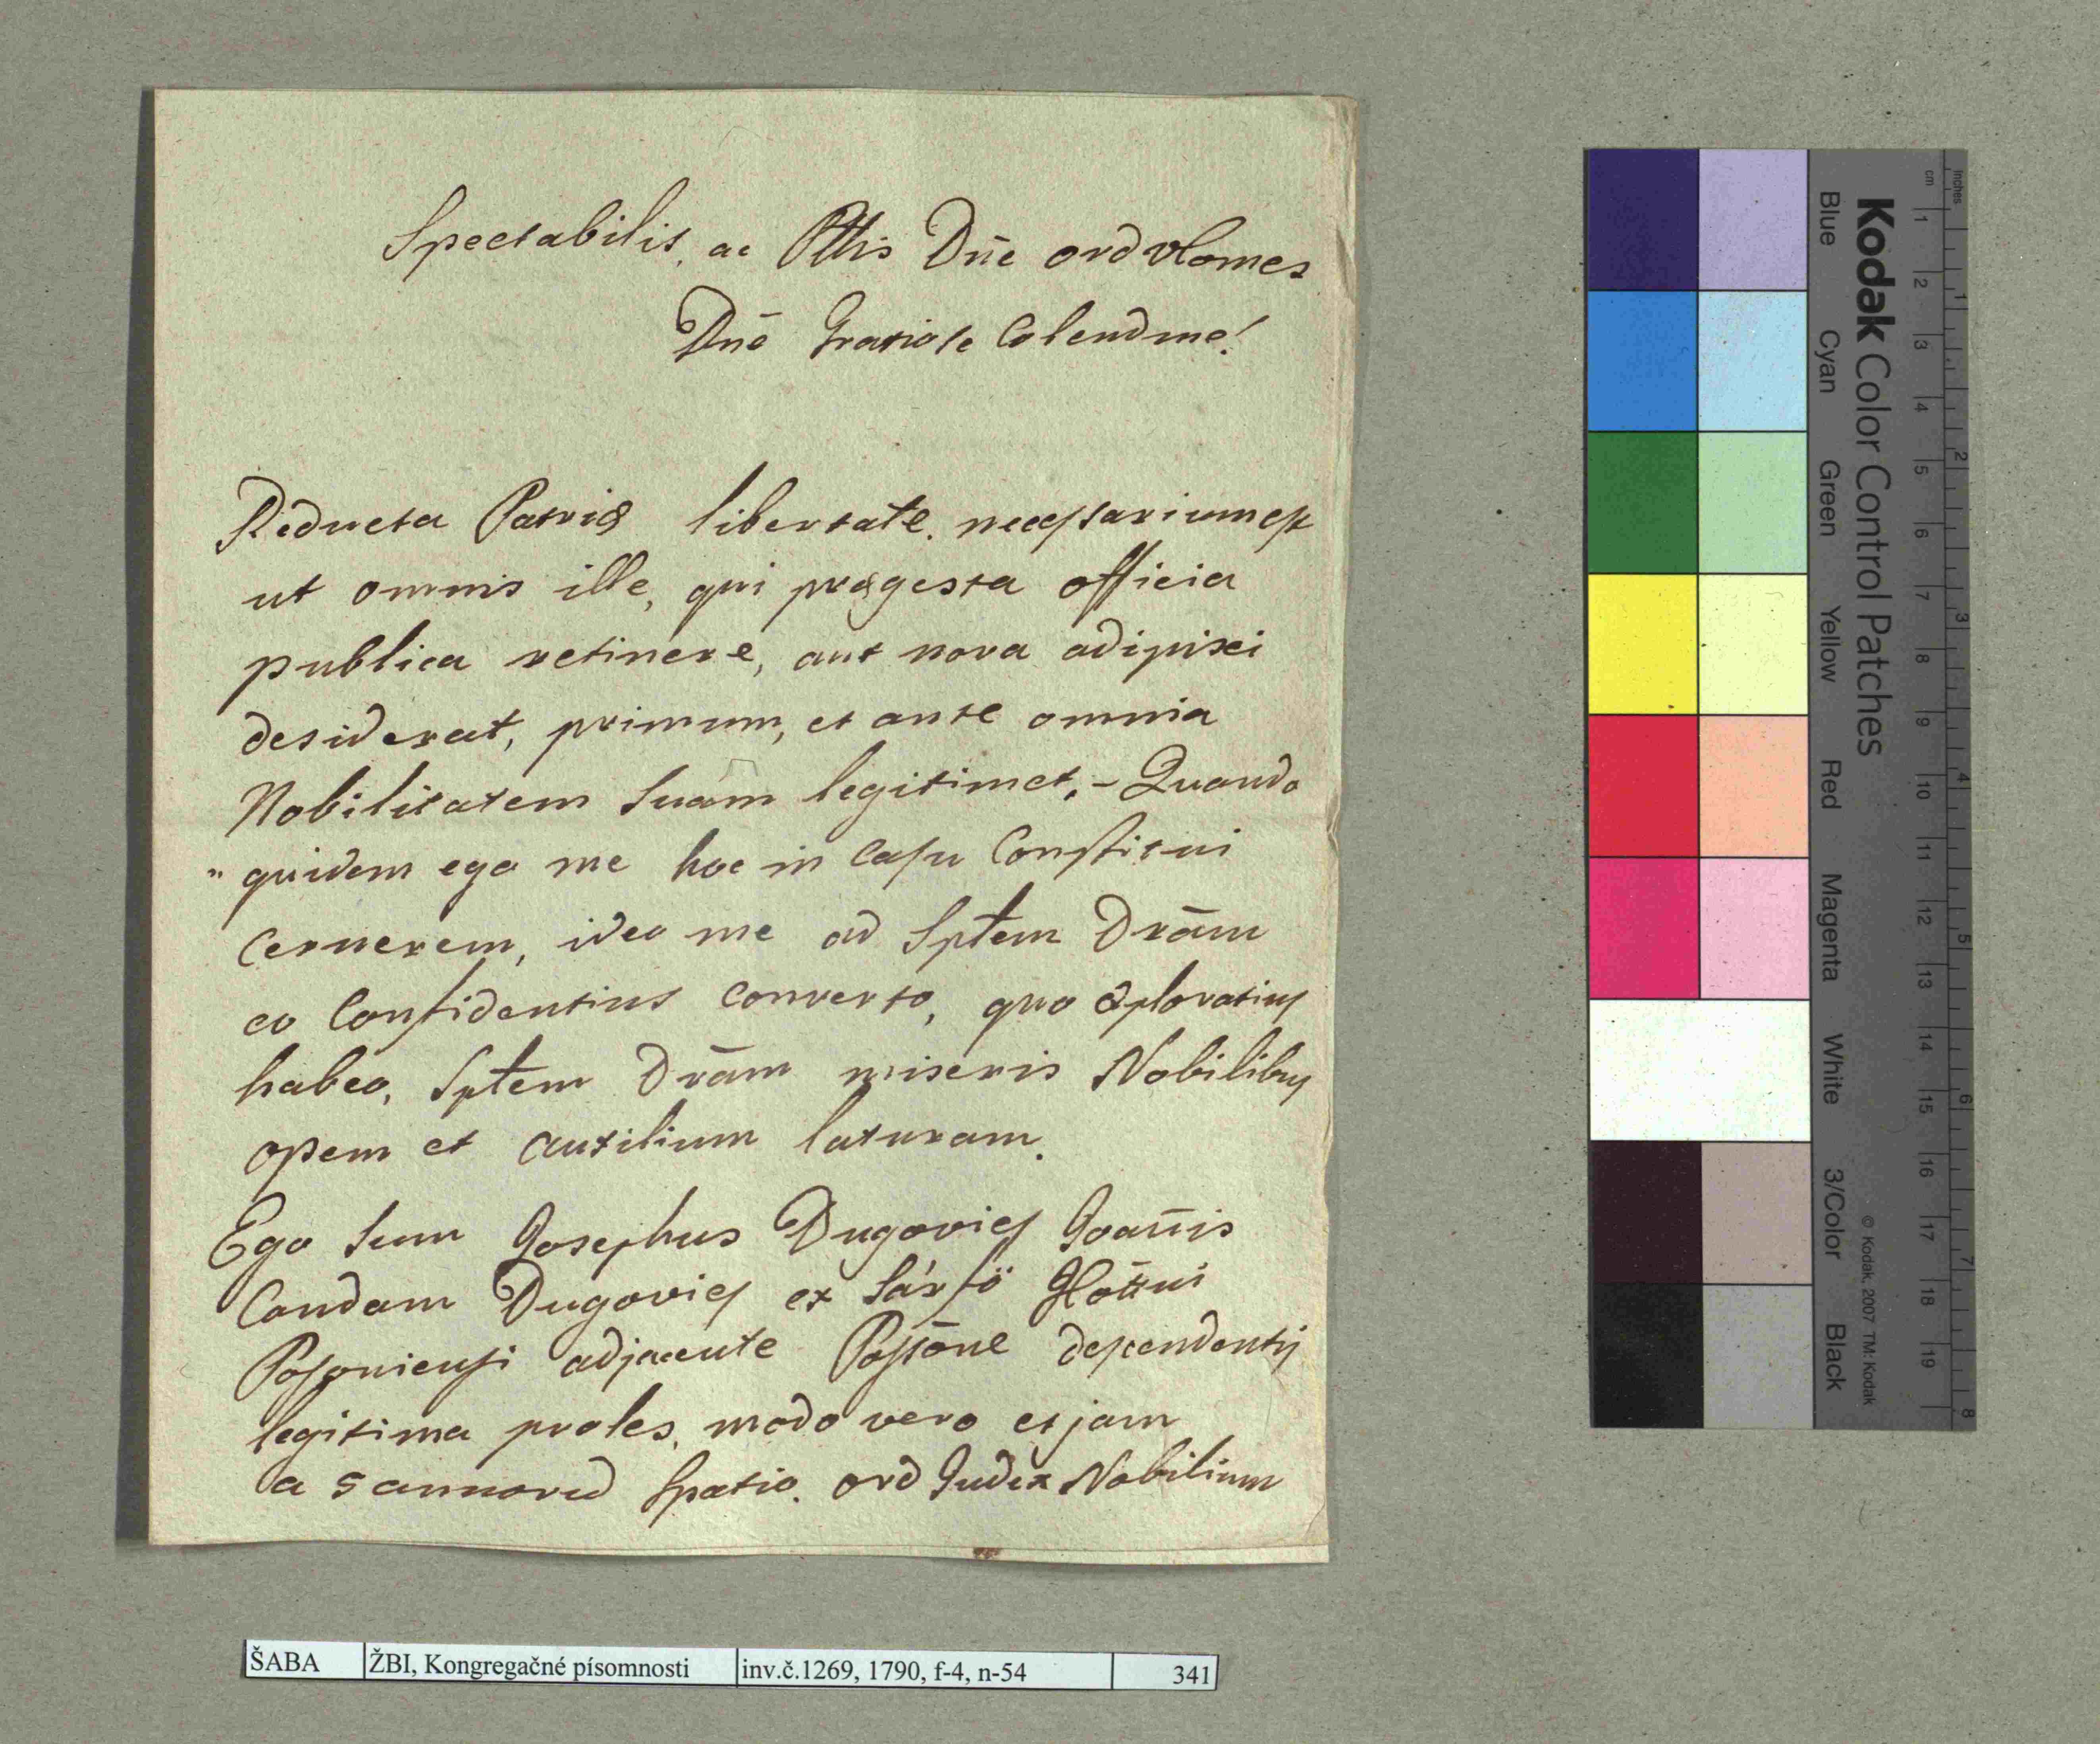 Spectabilis, ac Pttis Dn̄e ord vComes
Dnē Gratiose Colendme!
Reducta Patriæ libertate, necessarium est
ut omnis ille, qui prægesta officia
publica retinere, aut nova adipisci
desiderat, primum, et ante omnia
Nobilitatem suam legitimet, - Quando
" quidem ego me hoc in Casu Constitui
Cernerem, ideo me ad Sptem Drām
eo Confidentius converto, quo exploratius
habeo, Sptem Drām miseris Nobilibus
opem et auxilium laturam.
Ego sum Josephus Dugovics Joañis
Condam Dugovics ex Sárfö
Posoniensi adjacente Possōne descendentis
legitima proles, modo vero etjam
a 5 annorū Spatio, ord Judex Nobilium
ŠABA ŽBI, Kongregačné písomnosti inv.č.1269, 1790, f-4, n-54 341
Kodak Color Control Patches
Blue Cyan Green Yellow Red Magenta White 3/Color Black
© Kodak, 2007 TM: Kodak
cm 1 2 3 4 5 6 7 8 9 10 11 12 13 14 15 16 17 18 19
Inches 1 2 3 4 5 6 7 8